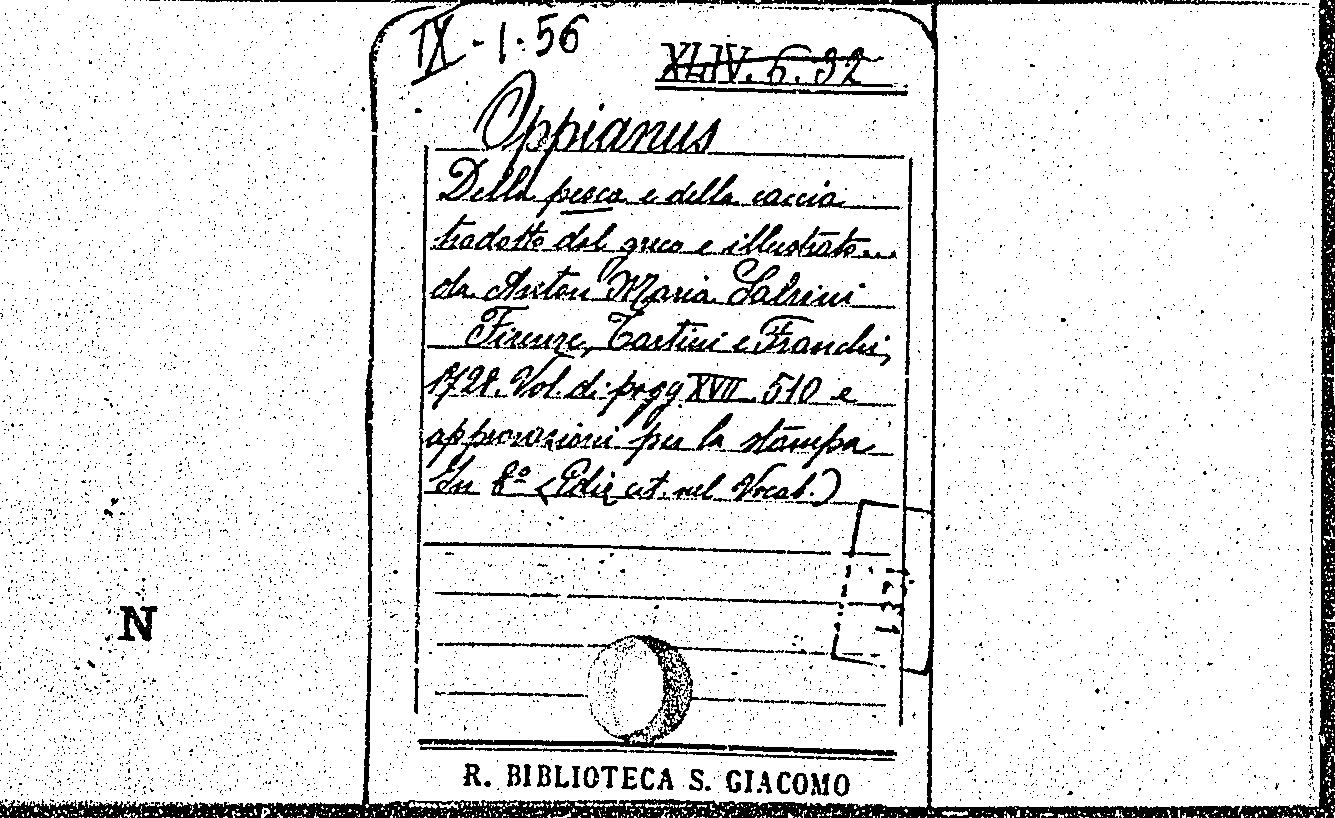 IX-1.56
XLIV. 6. 32
Oppianus
Della pesca e della caccia
tradotto dal greco e illustrato...
da Anton Maria Salvini
Firenze, Tartini e Franchi,
1728. Vol. di pagg. XVII 510 e
approvazioni per la stampa
In 8º (Ediz. cit. nel Vocab.)
N
R. BIBLIOTECA S. GIACOMO